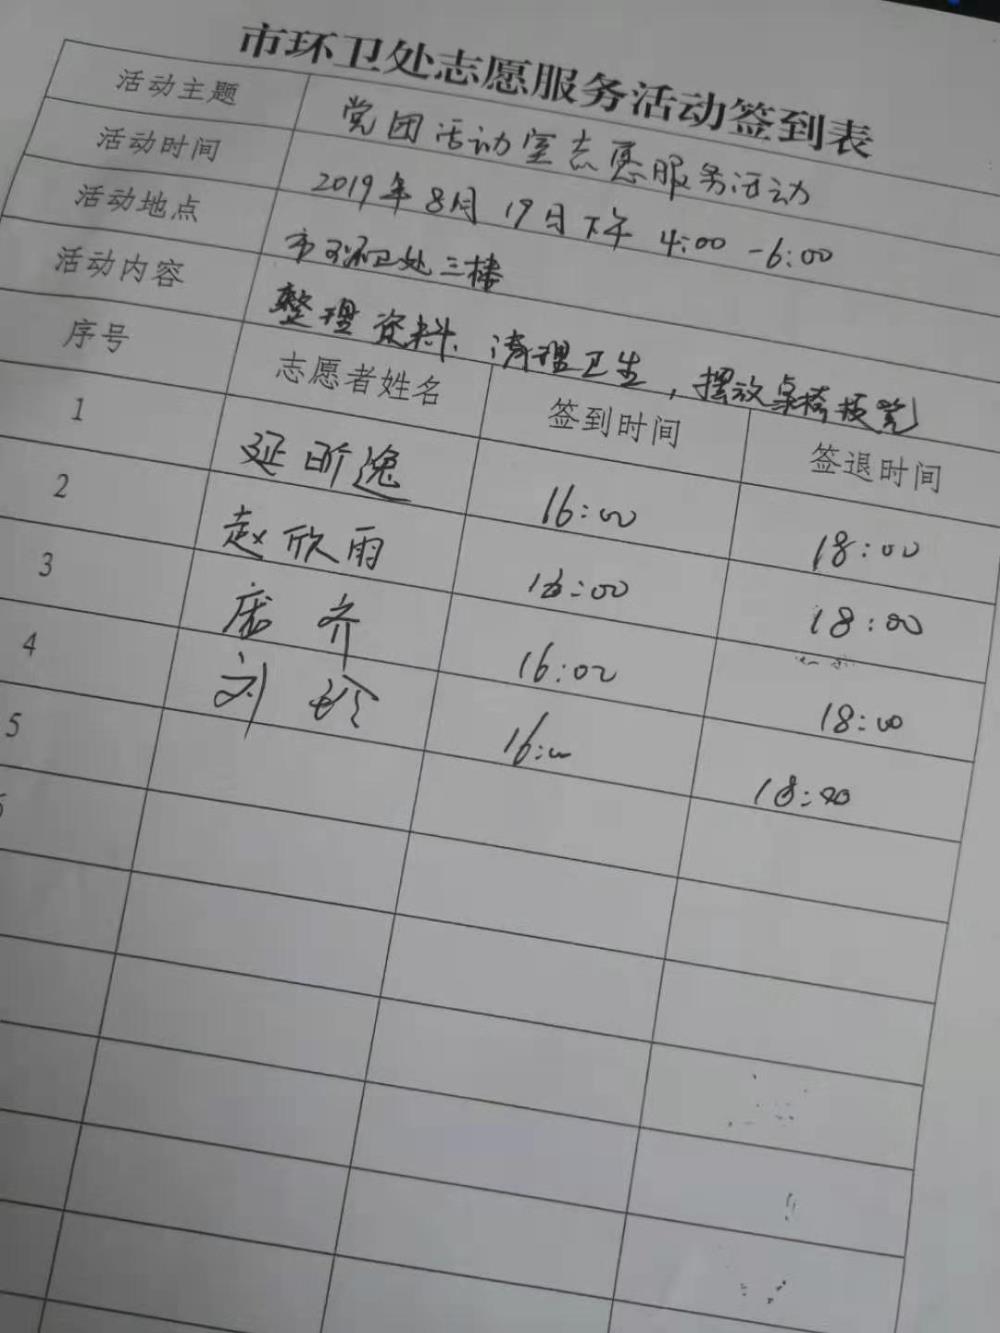 市环卫处志愿服务活动签到表
活动主题 党团活动室志愿服务活动
活动时间 2019年8月19日下午 4:00-6:00
活动地点 市环卫处三楼
活动内容 整理资料、清理卫生,摆放桌椅板凳
序号 志愿者姓名 签到时间 签退时间
1 延昕逸 16:00 18:00
2 赵欣雨 16:00 18:00
3 庞齐 16:00 18:00
4 刘玲 16:00 18:00
5